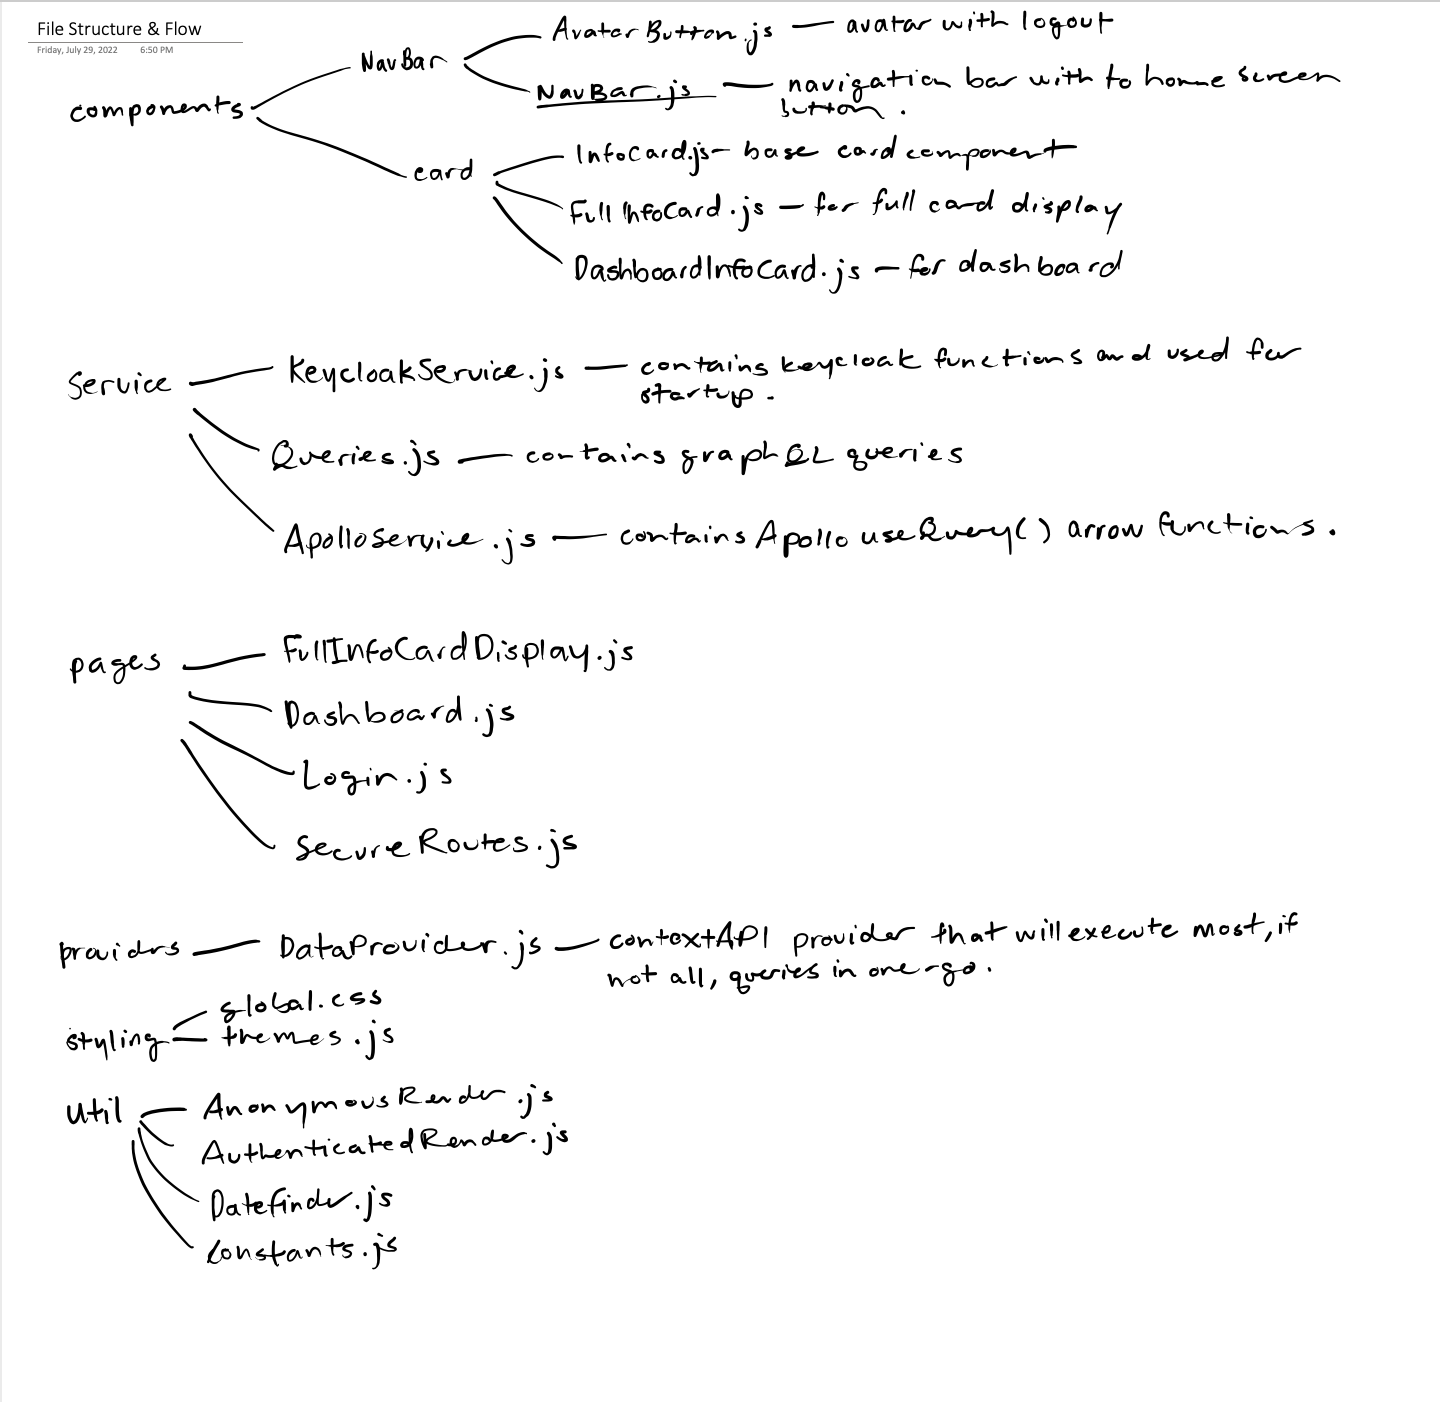 File Structure & Flow
Friday, July 29, 2022 6:50 PM
components
NavBar
AvatarButton.js — avatar with logout
NavBar.js — navigation bar with to home screen
button.
card
InfoCard.js — base card component
FullInfoCard.js — for full card display
DashboardInfoCard.js — for dashboard
Service
KeycloakService.js — contains keycloak functions and used for
startup.
Queries.js — contains graphQL queries
ApolloService.js — contains Apollo useQuery() arrow functions.
pages
FullInfoCardDisplay.js
Dashboard.js
Login.js
SecureRoutes.js
providrs — DataProvider.js — contextAPI provider that will execute most, if
not all, queries in one-go.
global.css
styling
themes.js
Util
AnonymousRender.js
AuthenticatedRender.js
Datefinder.js
Constants.js